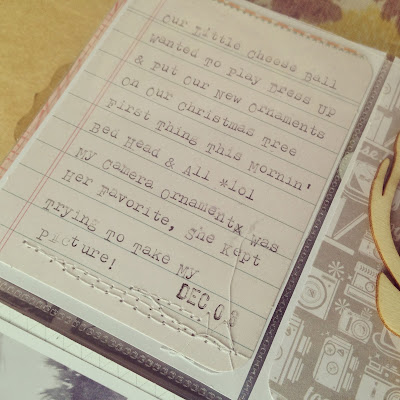 Our Little Cheese Ball
Wanted To Play Dress Up
& Put Our New Ornaments
On Our Christmas Tree
First Thing This Mornin'
Bed Head & All *lol
My Camera Ornamentx Was
Her Favorite, She Kept
Trying To Take My
Picture!
DEC.03